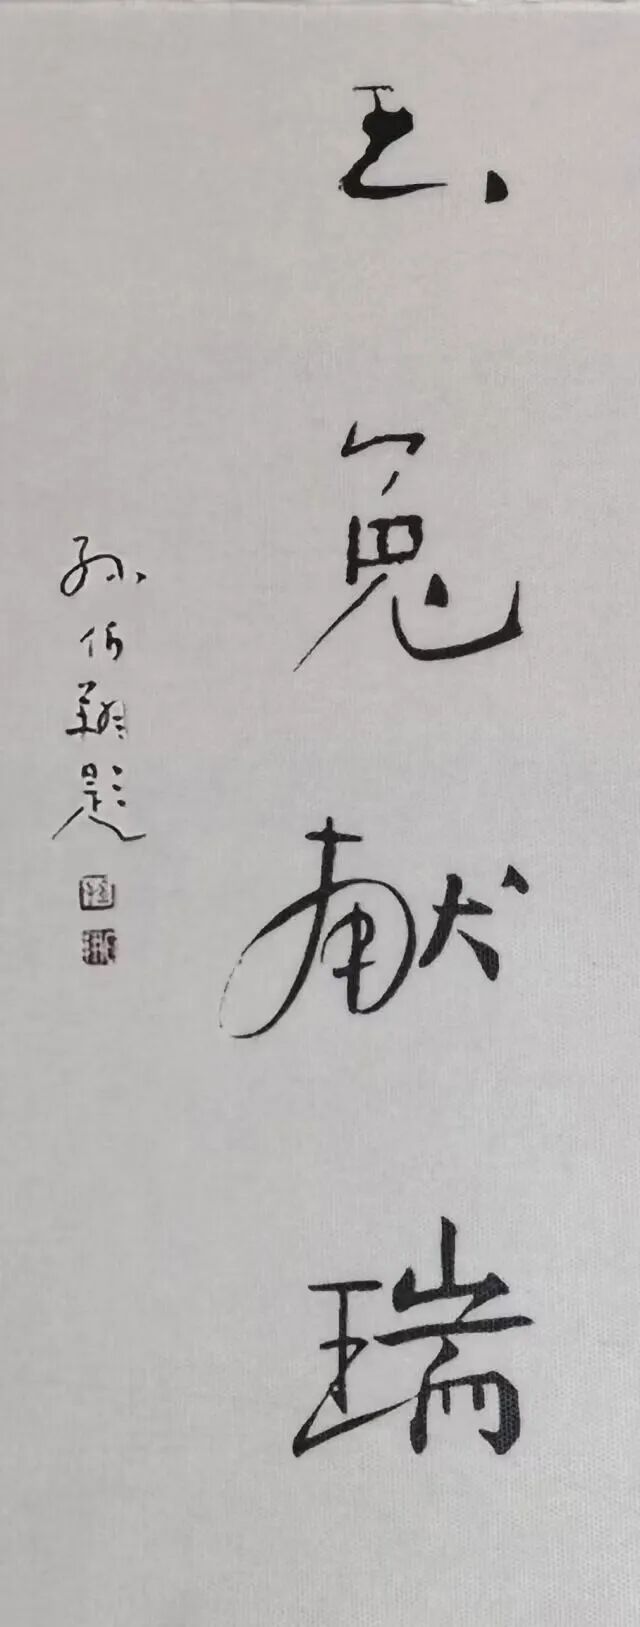 玉兔献瑞
孙伯翔题